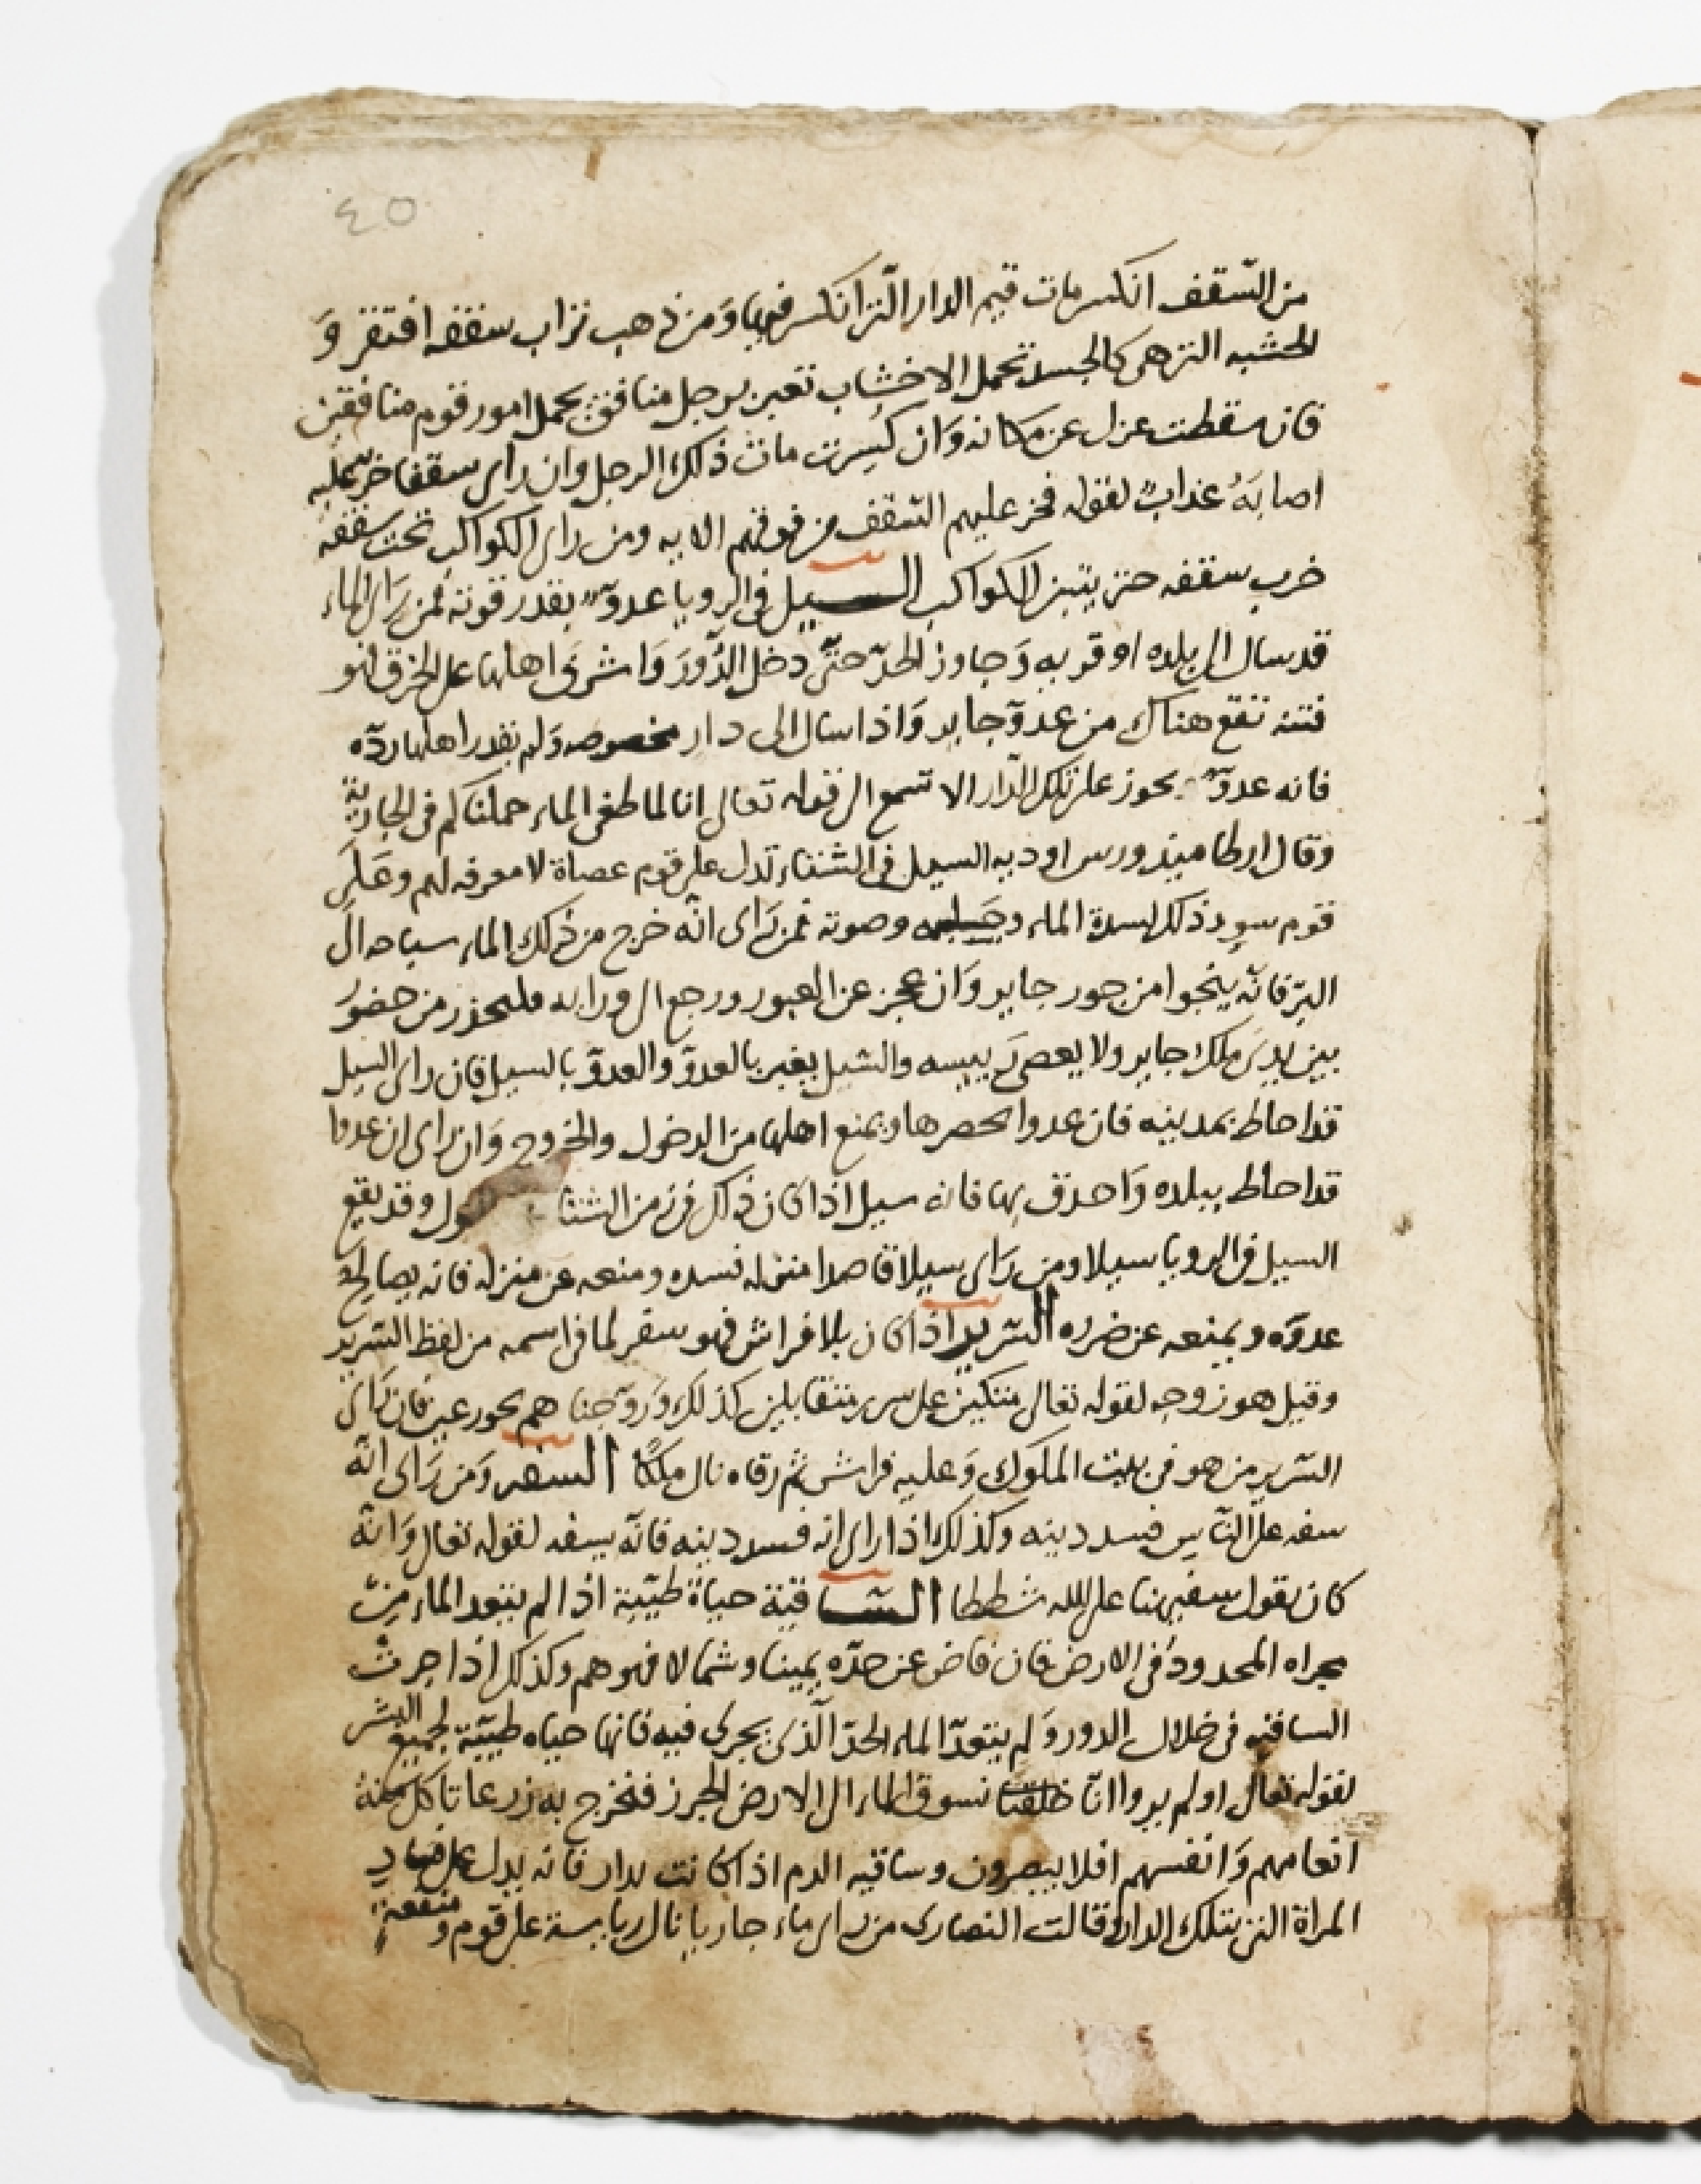 ٤٥
من السقف انكسر مات قيم الدار التي انكسر فيها وَمن ذهب تراب سقفه افتقر وَ
الخشبه التي هي كالجسد تحمل الاخشاب تعبر برجل منافق يحمل امور قوم منافقين
فان سقطت عزل عن مكانه وَان كُسِرت مات ذلك الرجل وان راى سقفا خر عليه
اصابَهُ عذابٌ لقوله فخر عليهم السّقف من فوقهم الايه ومن راى الكواكب تحت سقفه
خرب سقفه حتى يتبين الكواكب السيل فى الرويا عدوّ بقدر قوته فمن رَاى الماء
قد سال الى بلده او قريه وَجاوز الحدّ حتّى دخل الدُورَ وَاشرف اهلها على الغرق فهو
فتنه تقع هناك من عدوّ جاير وَاذا سال الى دار مخصوصه وَلم يقدر اهلها ردّه
فانه عدوّ يجوز على تلك الدّار الا تسمع الى قوله تعالى انا لما طغى الماء حملناكم فى الجارية
وقال ارطاميذورس اوديه السيل فى الشتاء تدل على قوم عصاة لا معرفه لهم وعَلى
قوم سوء وذلك لسدة الماء وجلبه وصوته فمن رَاى انّه خرج من ذلك الماء سباحه الى
البرّ فانّه ينجوا من جور جاير وَان عجز عن العبور ورجع الى ورايه فليحذر من حضور
بين يدى ملك جاير ولا يعصى رييسه والسّيل يعبر بالعدوّ والعدوّ بالسيل فان راى السيل
قد احاط بمدينه فان عدوا يحصرها ويمنع اهلها من الدخول والخروج وَان راى ان عدوا
قد احاط ببلده وَاحدق بها فانه سيل اذا كان ذلك فى زمن الشتا وقد يقع
السيل فى الرويا سيلا ومن رَاى سيلا قاصدا منزله فسده ومنعه عن منزله فانه يصالح
عدوّه ويمنعه عن ضرره السّرير اذا كان بلا فراش فهو سفر لما فى اسمه من لفظ السّرير
وقيل هو زوجه لقوله تعالى متكئين على سرر متقابلين كذلك وَزوّجناهم بحور عين فان رَاى
السّرير من هو فى بيت الملوك وَعليه فراش ثم رقاه نال مُلكًا السفه وَمن رَاى انّه
سفه على النّاس فسد دينه وكذلك اذا راى انه فسد دينه فانّه يسفه لقوله تعالى وَانّه
كان يقول سفيهنا على الله شططا السّاقية حياة طيّبة اذا لم يتعد الماء من
مجراه المحدود فى الارض فان فاض عن حدّه يمينا وشمالا فهو هم وكذلك اذا جرت
الساقيه فى خلال الدور وَلم يتعدّ الماء الحدّ الّذى يجرى فيه فانها حياه طيبّة لجميع البشر
لقوله تعالى اولم يروا انّا نسوق الماء الى الارض الجرز فنخرج به زرعا تاكل منه
انعامهم وَانفسهم افلا يبصرون وساقيه الدم اذا كانت بدار فانه يدل على فساد
المراة التى بتلك الدار وقالت النصارى من راى ماء جاريا نال رياسة على قوم ومنفعة